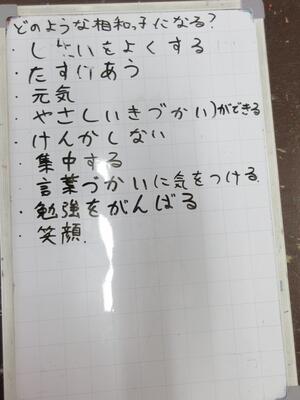 どのような相和っ子になる?
・しせいをよくする
・たすけあう
・元気
・やさしい(きづかい)ができる
・けんかしない
・集中する
・言葉づかいに気をつける.
・勉強をがんばる
・笑顔.